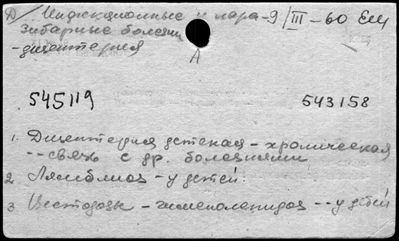 D/ Инфекционные и пара- 9/III-60
зитарные болезни
-дизентерия
А
545119 543158
1. Дизентерия детская - хроническая
-- связь с др. болезнями
2 Лямблиоз - у детей.
3 Цестодозы - гименолепидоз -- у детей